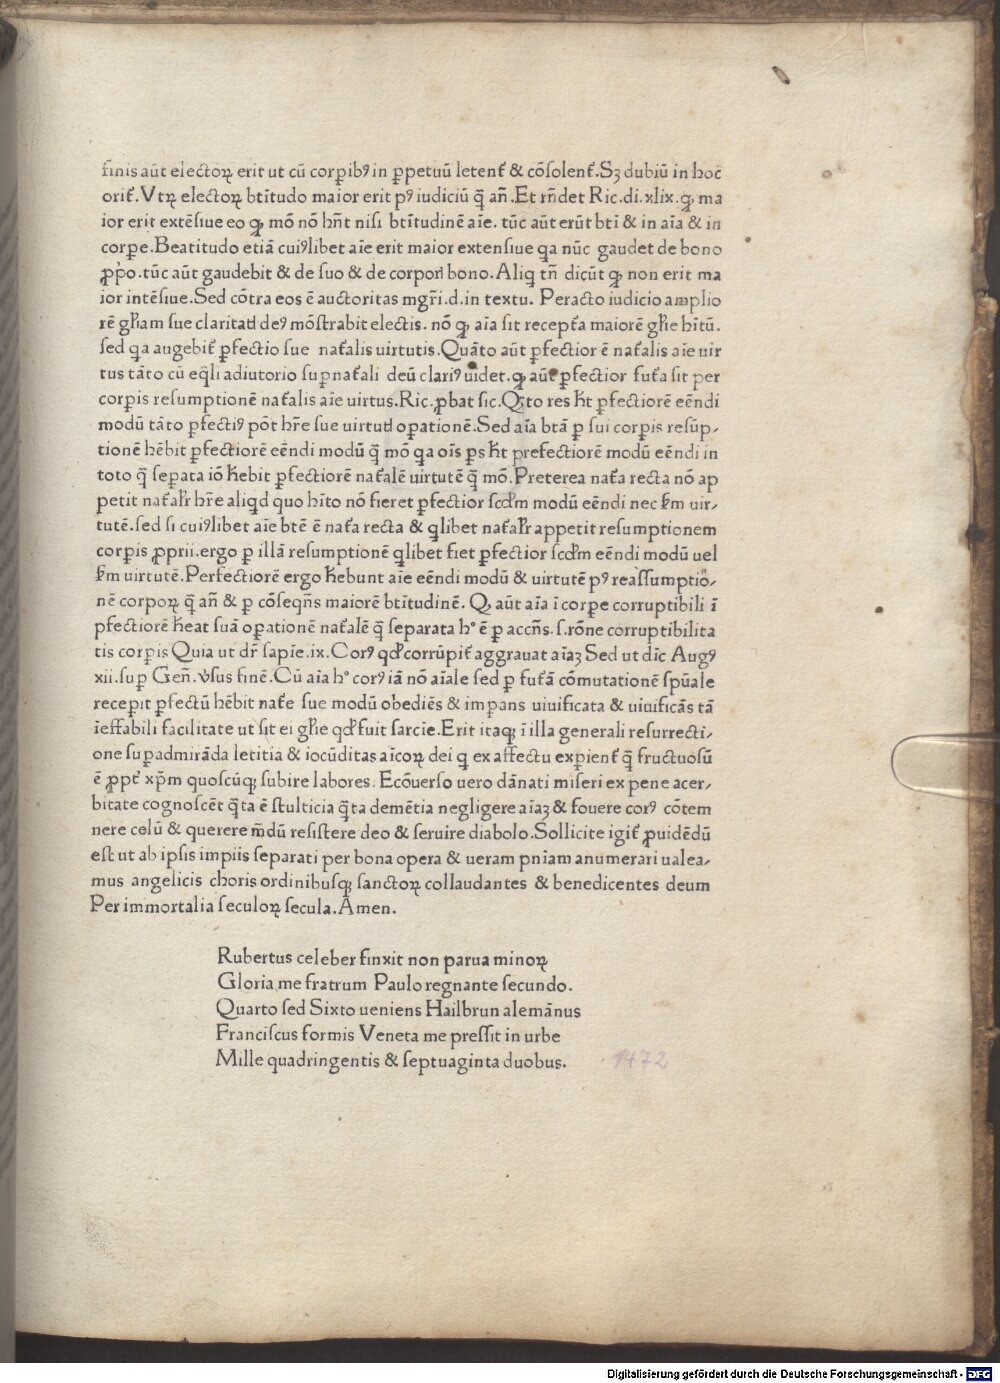 finis aūt electoꝝ erit ut cū corꝑibꝰ in ꝑpetuū letent᷑ & cōsolent᷑. Sꝫ dubiū in hoc
orit᷑. Vtꝝ electoꝝ bt̄itudo maior erit pꝰ iudiciū q̄ an̄. Et rn̄det Ric. di. xlix. ꝙ ma
ior erit extēsiue eo ꝙ mō nō hn̄t nisi bt̄itudinē aīe. tūc aūt erūt bt̄i & in aīa & in
corꝑe. Beatitudo etiā cuiꝰlibet aīe erit maior extensiue qa nūc gaudet de bono
ꝓpͥo. tūc aūt gaudebit & de suo & de corporꝭ bono. Aliq tn̄ dicūt ꝙ non erit ma
ior intēsiue. Sed cōtra eos ē auctoritas mgr̄i. d. in textu. Peracto iudicio amplio
rē gl̄iam sue claritatꝭ deꝰ mōstrabit electis. nō ꝙ aīa sit recept᷑a maiorē gl̄ie hītū.
sed qa augebit᷑ ꝑfectio sue nat᷑alis uirtutis. Quāto aūt ꝑfectior ē nat᷑alis aīe uir
tus tāto cū eq̄li adiutorio suꝑnat᷑ali deū clariꝰ uidet. ꝙ aūt ꝑfectior fut᷑a sit per
corꝑis resumptionē nat᷑alis aīe uirtus. Ric. ꝓbat sic. Qͣto res h̄t ꝑfectiorē eēndi
modū tāto ꝑfectiꝰ pōt hr̄e sue uirtutꝭ oꝑationē. Sed aīa btā ꝑ sui corꝑis resūp-
tionē hēbit ꝑfectiorē eēndi modū q̄ mō qa oīs ꝑs h̄t prefectiorē modū eēndi in
toto q̄ seꝑata iō h̄ebit ꝑfectiorē nat᷑alē uirtutē q̄ mō. Preterea nat᷑a recta nō ap
petit nat᷑alr̄ hr̄e aliqd quo hīto nō fieret ꝑfectior scd̄m modū eēndi nec s̄m uir-
tutē. sed si cuiꝰlibet aīe btē ē nat᷑a recta & qlibet nat᷑alr̄ appetit resumptionem
corꝑis ꝓprii. ergo ꝑ illā resumptionē qlibet fiet ꝑfectior scd̄m eēndi modū uel
s̄m uirtutē. Perfectiorē ergo h̄ebunt aīe eēndi modū & uirtutē pꝰ reassumptio-
nē corpoꝝ q̄ an̄ & ꝑ cōseqn̄s maiorē bt̄itudinē. Q aūt aīa ī corꝑe corruptibili ī
ꝑfectiorē h̄eat suā oꝑationē nat᷑alē q̄ separata h° ē ꝑ accn̄s. s. rōne corruptibilita
tis corꝑis Quia ut dr̄ sapīe. ix. Corꝰ qd̄ corrūpit᷑ aggrauat aīaꝫ Sed ut dīc Augꝰ
xii. suꝑ Gen̄. v̄sus finē. Cū aīa h° corꝰ iā nō aīale sed ꝑ fut᷑ā cōmutationē spūale
receꝑit ꝑfectū hēbit nat᷑e sue modū obediēs & imꝑans uiuificata & uiuificās tā
īeffabili facilitate ut sit ei gl̄ie qd̄ fuit sarcīe. Erit itaqꝫ ī illa generali resurrecti-
one suꝑadmirāda letitia & iocūditas aīcoꝝ dei q ex affectu exꝑient᷑ q̄ fructuosū
ē ꝓpt᷑ xp̄m quoscūqꝫ subire labores. Ecōuerso uero dānati miseri ex pene acer-
bitate cognoscēt q̄ta ē stulticia q̄ta demētia negligere aīaꝫ & fouere corꝰ cōtem
nere celū & querere m̄dū resistere deo & seruire diabolo. Sollicite igit᷑ ꝓuidēdū
est ut ab ipsis impiis separati per bona opera & ueram pn̄iam anumerari ualea-
mus angelicis choris ordinibusqꝫ sanctoꝝ collaudantes & benedicentes deum
Per immortalia seculoꝝ secula. Amen.
Rubertus celeber finxit non parua minoꝝ
Gloria me fratrum Paulo regnante secundo.
Quarto sed Sixto ueniens Hailbrun alemānus
Franciscus formis Veneta me pressit in urbe
Mille quadringentis & septuaginta duobus. 1472
Digitalisierung gefördert durch die Deutsche Forschungsgemeinschaft - DFG